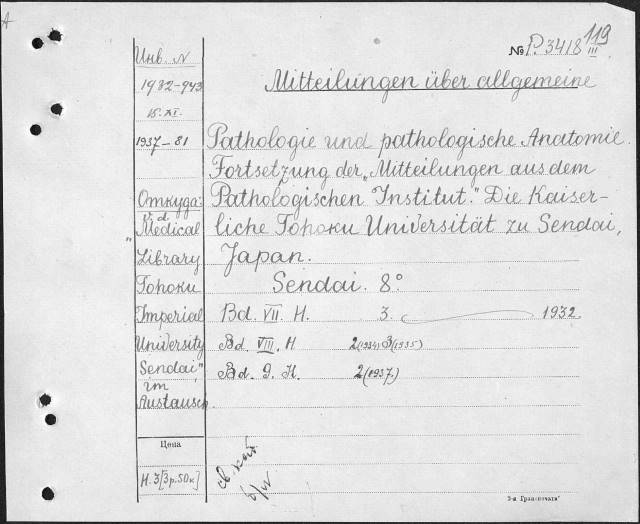 A
№ P. 3418 119/III
Инв. N
1932-943
15.XI.
1937-81
Откуда:
v. d.
„Medical
Library
Tohoku
Imperial
University
Sendai"
im
Austausch
Цена
Н. 3 [3р.50к]
Mitteilungen über allgemeine
Pathologie und pathologische Anatomie.
Fortsetzung der „Mitteilungen aus dem
Pathologischen Institut." Die Kaiser-
liche Tohoku Universität zu Sendai,
Japan.
Sendai. 8°
Bd. VII. H. 3. 1932
Bd. VIII. H 2(1934) 3(1935)
Bd. 9. H. 2(1937.)
св. кат.
3-я Гранпечати"